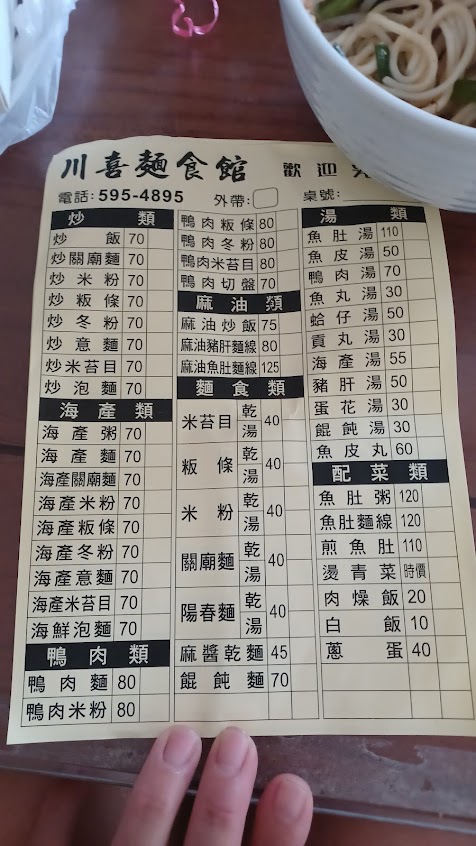 川喜麵食館 歡迎
電話:595-4895 外帶: 桌號:
炒類
炒飯 70
炒關廟麵 70
炒米粉 70
炒粄條 70
炒冬粉 70
炒意麵 70
炒米苔目 70
炒泡麵 70
海產類
海產粥 70
海產麵 70
海產關廟麵 70
海產米粉 70
海產粄條 70
海產冬粉 70
海產意麵 70
海產米苔目 70
海鮮泡麵 70
鴨肉類
鴨肉麵 80
鴨肉米粉 80
鴨肉粄條 80
鴨肉冬粉 80
鴨肉米苔目 80
鴨肉切盤 70
麻油類
麻油炒飯 75
麻油豬肝麵線 80
麻油魚肚麵線 125
麵食類
米苔目 乾 湯 40
粄條 乾 湯 40
米粉 乾 湯 40
關廟麵 乾 湯 40
陽春麵 乾 湯 40
麻醬乾麵 45
餛飩麵 70
湯類
魚肚湯 110
魚皮湯 50
鴨肉湯 70
魚丸湯 30
蛤仔湯 50
貢丸湯 30
海產湯 55
豬肝湯 50
蛋花湯 30
餛飩湯 30
魚皮丸 60
配菜類
魚肚粥 120
魚肚麵線 120
煎魚肚 110
燙青菜 時價
肉燥飯 20
白飯 10
蔥蛋 40